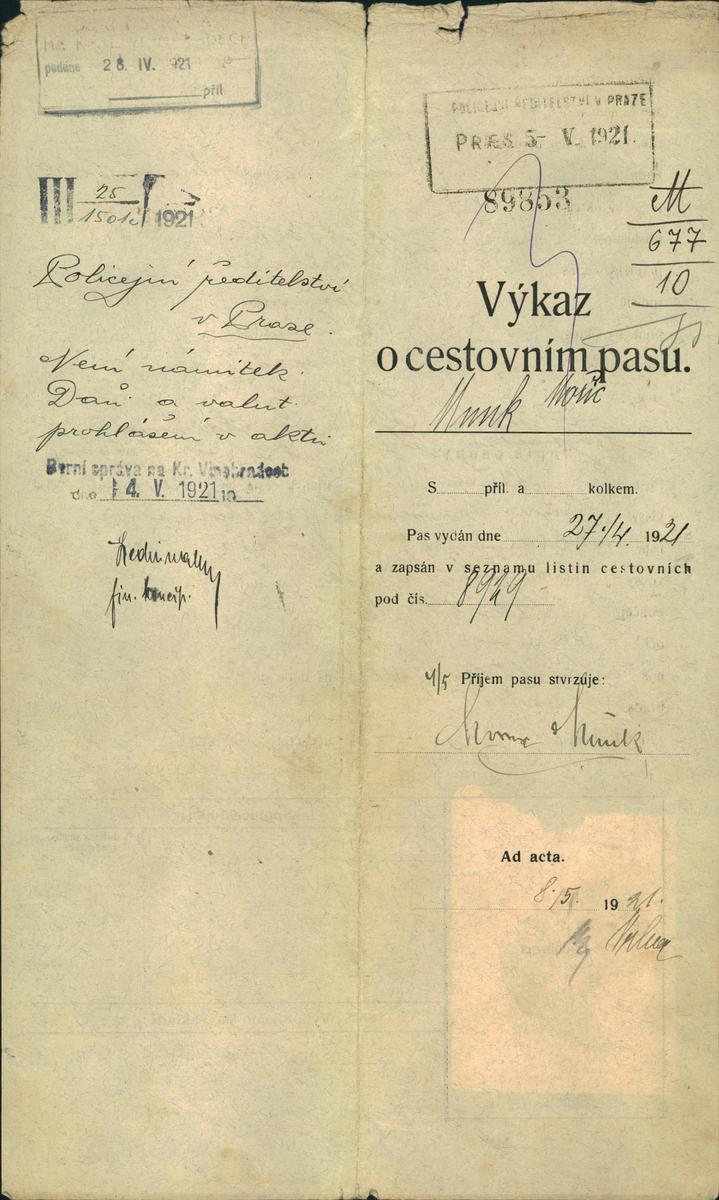 podáno 28. IV. 1921
příl.
III 25 / 1921
Policejní ředitelství
v Praze.
Není námitek.
Daň. a valut.
prohlášení v aktu
Berní správa na Kr. Vinohradech
dne 4. V. 1921
POLICEJNÍ ŘEDITELSTVÍ V PRAZE
PRÆS 5- V. 1921.
89853
M
677
10
Výkaz
o cestovním pasu.
Munk Mořic
S příl. a kolkem.
Pas vydán dne 27./4. 1921
a zapsán v seznamu listin cestovních
pod čís. 8929
4/5 Příjem pasu stvrzuje:
Munk
Ad acta.
8./5. 1921.